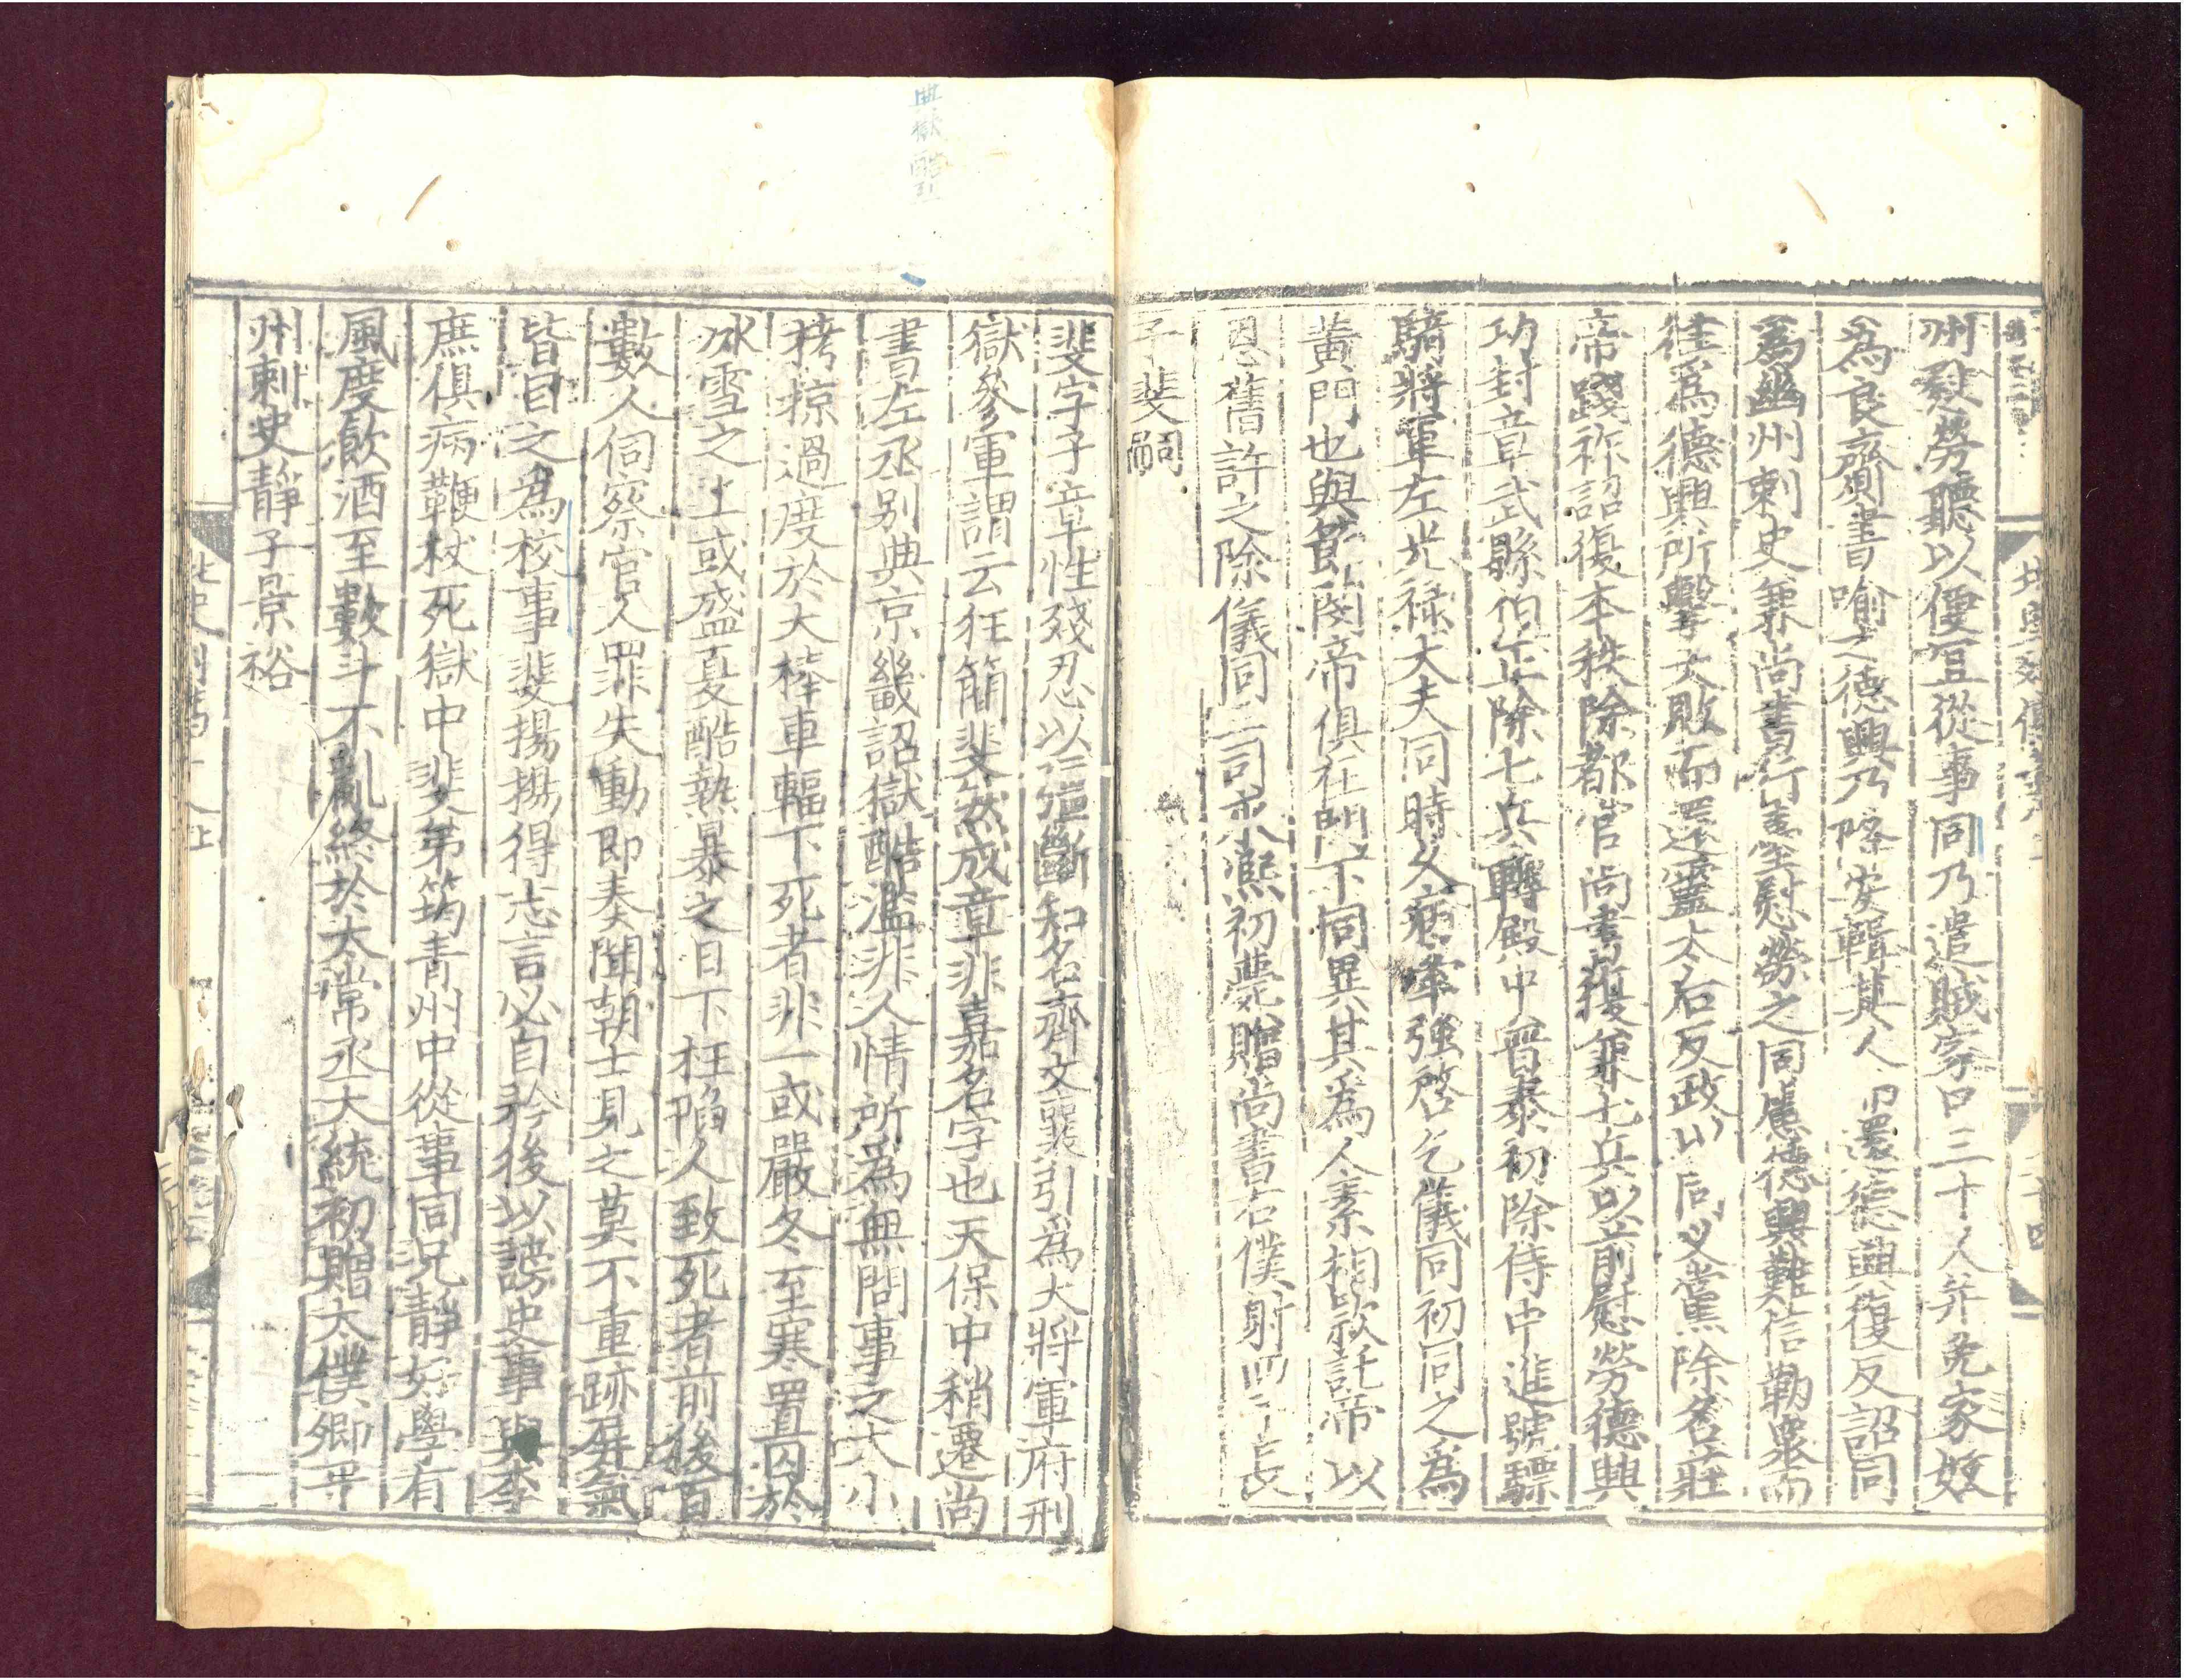 州慰勞聽以便宜從事同乃遣賊家口三十人并免家奴
爲良齎書喻之德興乃降安輯其人而還德興復反詔同
爲幽州刺史兼尚書行臺慰勞之同慮德興難信勒衆而
往爲德興所擊大敗而還靈太后反政以同乂黨除名莊
帝踐祚詔復本秩除都官尚書復兼七兵以前慰勞德興
功封章武縣伯正除七兵轉殿中普泰初除侍中進號驃
騎將軍左光祿大夫同時久病牽強啓乞儀同初同之爲
黃門也與節閔帝俱在門下同異其爲人素相款託帝以
恩舊許之除儀同三司永熙初薨贈尚書右僕射四子長
子斐嗣
斐字子章性殘忍以強斷知名齊文襄引爲大將軍府刑
獄參軍謂云狂簡斐然成章非嘉名字也天保中稍遷尚
書左丞别典京畿詔獄酷濫非人情所爲無問事之大小
拷掠過度於大棒車輻下死者非一或嚴冬至寒置囚於
冰雪之上或盛夏酷熱暴之日下枉陷人致死者前後百
數人伺察官人罪失動即奏聞朝士見之莫不重跡屏氣
皆目之爲校事斐揚揚得志言必自矜後以謗史事與李
庶俱病鞭杖死獄中斐弟筠青州中從事同況靜好學有
風度飲酒至數斗不亂終於太常丞大統初贈太僕卿平
州刺史靜子景裕
典獄酷